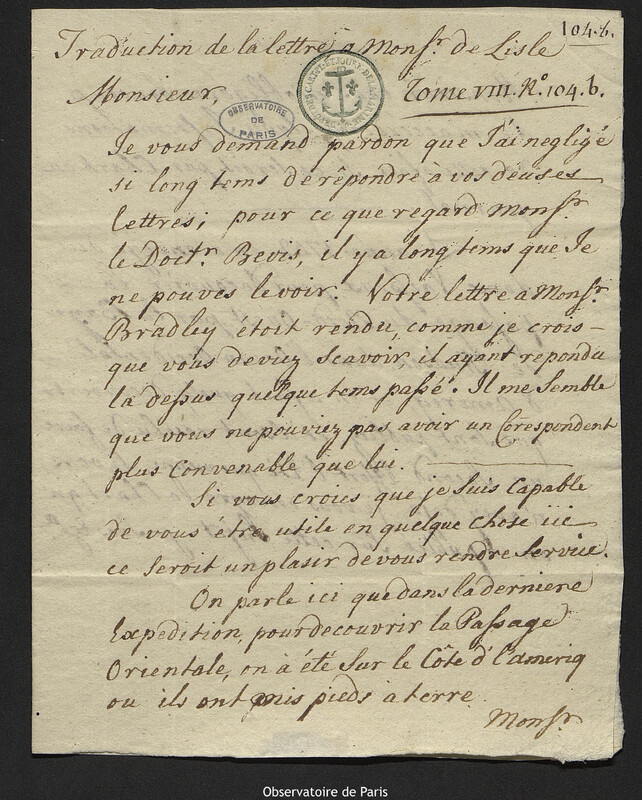 104.b.
Traduction de la lettre a Monsr. de Lisle
Monsieur,
Tome VIII. No. 104.b.
OBSERVATOIRE
DE
PARIS
Je vous demand pardon que J'ai negligé
si long tems de rêpondre à vos deuses
lettres; pour ce que regard Monsr.
le Doctr. Bevis, il y a long tems que Je
ne pouves le voir. Votre lettre a Monsr.
Bradley étoit rendu, comme je crois
que vous deviez scavoir, il ayant repondu
la dessus quelque tems passé. Il me semble
que vous ne pouviez pas avoir un Corespondent
plus convenable que lui.
Si vous croies que je suis capable
de vous être utile en quelque chose ici
ce seroit un plasir de vous rendre service.
On parle ici que dans la derniere
Expedition, pour decouvrir la Passage
Orientale, on à été sur le Côte d'l'ameriq
ou ils ont mis pieds a terre.
Monsr.
Observatoire de Paris